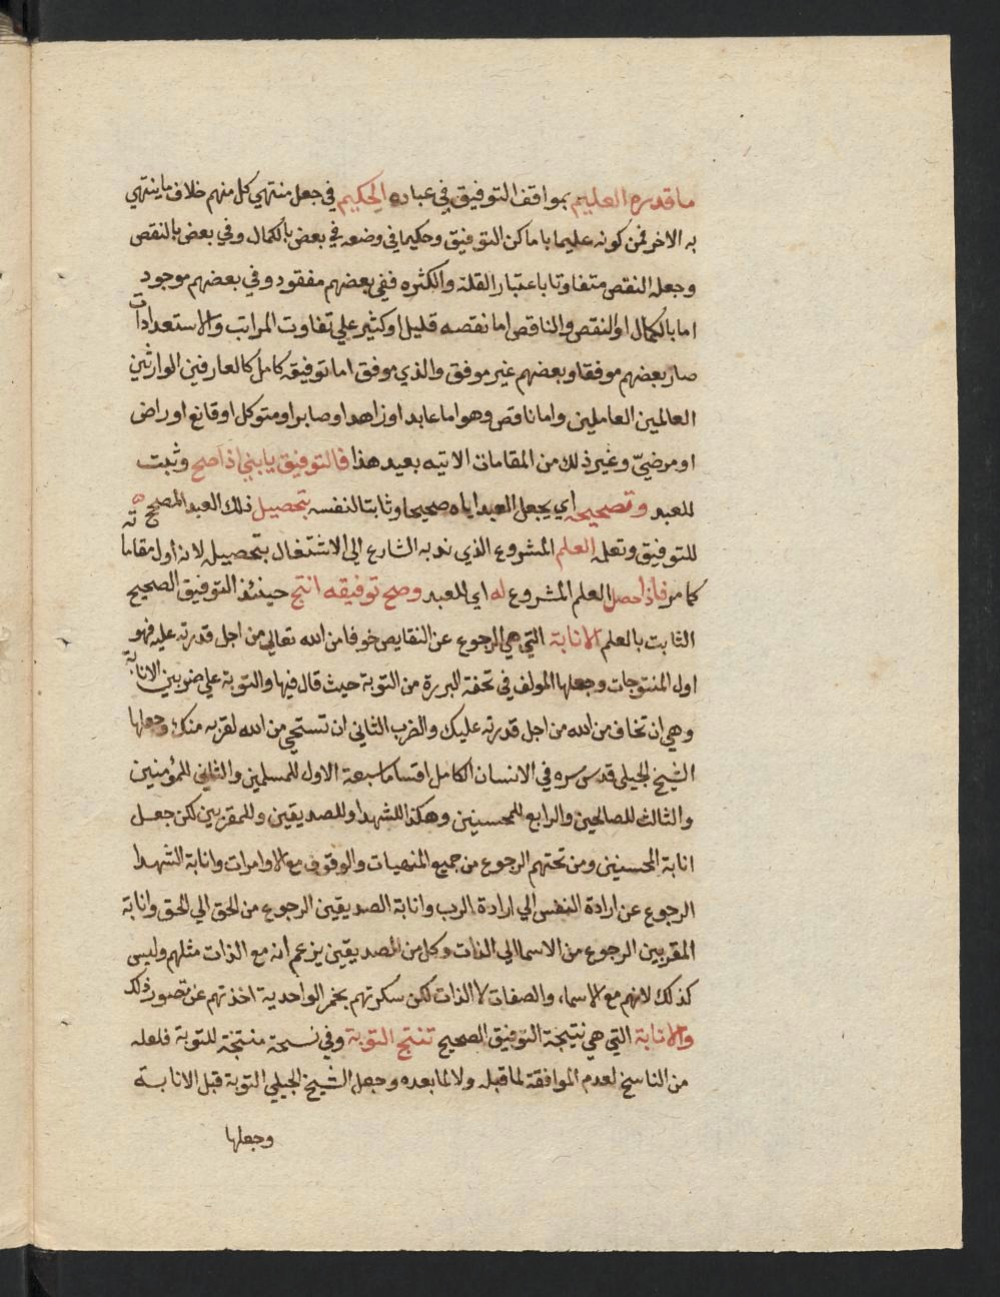 ما قدره العليم بمواقف التوفيق في عباده الحكيم في جعل منتهي كل منهم خلاف ما ينتهي
به الاخر فمن كونه عليما باماكن التوفيق وحكيما في وضعه في بعض بالكمال وفي بعض بالنقص
وجعله النقص متفاوتا باعتبار القلة والكثره ففي بعضهم مفقود وفي بعضهم موجود
اما بالكمال او النقص والناقص اما نقصه قليل او كثير علي تفاوت المراتب والاستعدادات
صار بعضهم موفقا وبعضهم غير موفق والذي موفق اما توفيقه كامل كالعارفين الوارثين
العالمين العاملين واما ناقص وهو اما عابد او زاهد او صابر او متوكل او قانع او راض
او مرضيّ وغير ذلك من المقامات الاتيه بعيد هذا فالتوفيق يا بني اذا صح وثبت
للعبد وتصحيحه اي يجعل العبد اياه صحيحا وثابتا لنفسه بتحصيل ذلك العبد المصحح
للتوفيق وتعلمه العلم المشروع الذي ندبه الشارع الي الاشتغال بتحصيله لانه اول مقاماته
كما مر فاذا حصل العلم المشروع له اي للعبد وصح توفيقه انتج حينئذ التوفيق الصحيح
الثابت بالعلم الانابة التي هي الرجوع عن النقايص خوفا من الله تعالي من اجل قدرته عليه فهو
اول المنتوجات وجعلها المولف في تحفة البررة من التوبة حيث قال فيها والتوبة علي ضربين الانابة
وهي ان تخاف من الله من اجل قدرته عليك والضرب الثاني ان تستحي من الله لقربه منك وجعلها
الشيخ الجيلي قدس سره في الانسان الكامل اقساما سبعة الاول للمسلمين والثاني للمؤمنين
والثالث للصالحين والرابع للمحسينين وهكذا للشهدا وللصديقين وللمقربين لكن جعل
انابة المحسنين ومن تحتهم الرجوع من جميع المنهيات والوقوف مع الاوامرات وانابة الشهدا
الرجوع عن ارادة النفس الي ارادة الرب وانابة الصديقين الرجوع من الحق الي الحق وانابة
المقربين الرجوع من الاسما الي الذات وكل من الصديقين يزعم انه مع الذات مثلهم وليس
كذلك لانهم مع الاسماء والصفات لا الذات لكن سكرتهم بخمر الواحدية اخذتهم عن تصور ذلك
والانابة التي هي نتيجة التوفيق الصحيح تنتج التوبة وفي نسخة منتجة للتوبة فلعله
من الناسخ لعدم الموافقة لما قبله ولا لما بعده وجعل الشيخ الجيلي التوبة قبل الانابة
وجعلها